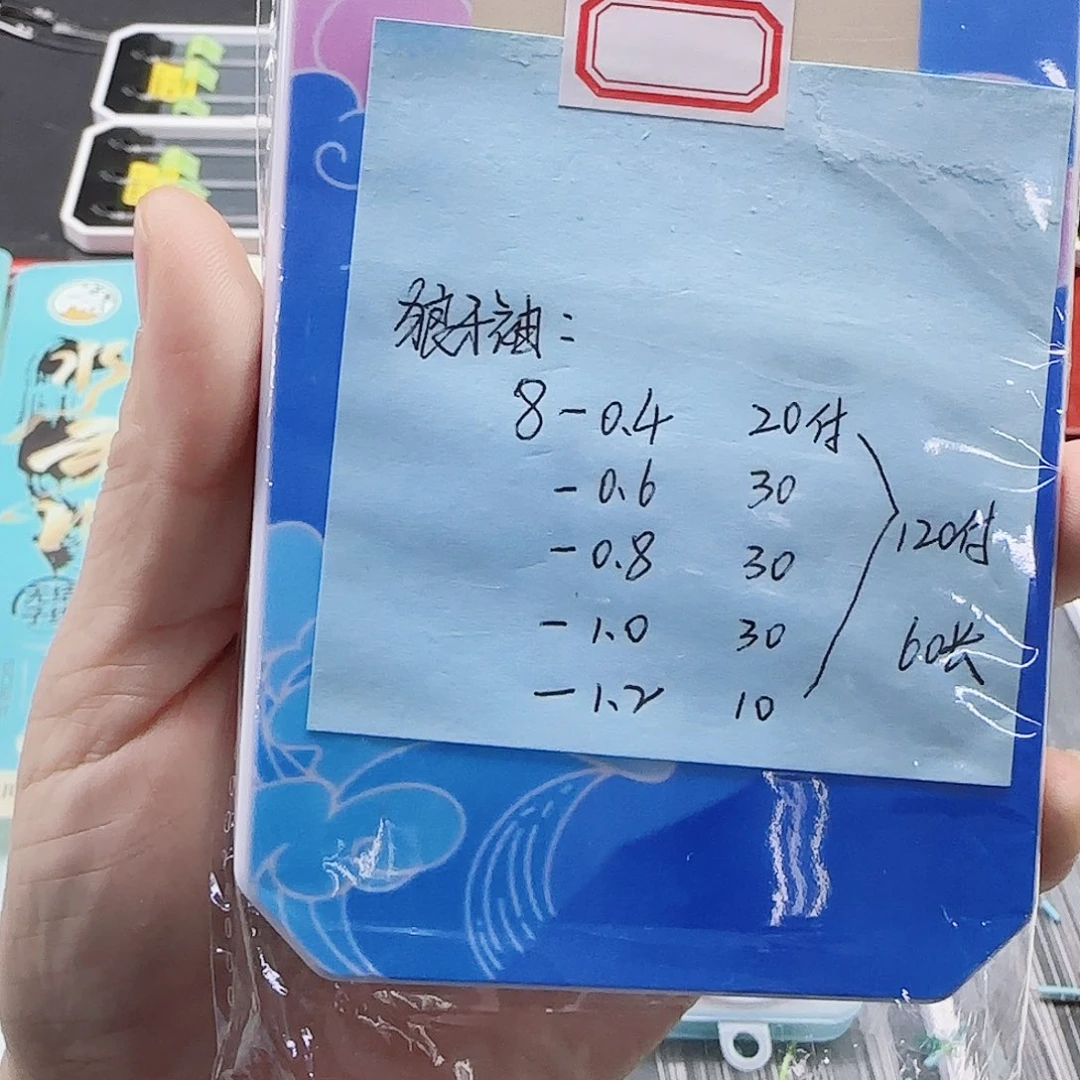 狼牙袖：
8-0.4 20付
-0.6 30
-0.8 30
-1.0 30
-1.2 10
120付
60长